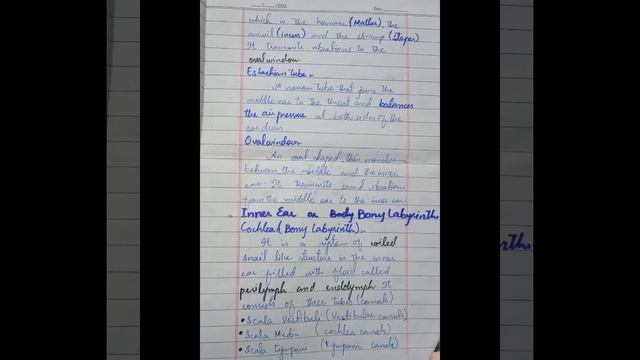 which is the hammer (Mallus), the
anvil (incus) and the stirrup (stapes)
It transmits vibrations to the
oval window.
Eustachian tube.
A narrow tube that joins the
middle ear to the throat and balances
the air pressure at both sides of the
ear drum
Oval window
An oval shaped, thin membrane
between the middle and the inner
ear. It transmits sound vibrations
from the middle ear to the inner ear
Inner Ear or Body Bony Labyrinth.
Cochlea (Bony Labyrinth).
It is a system of coiled
snail like structure in the inner
ear filled with fluid called
perilymph and endolymph It
consists of three tubes (canals)
• Scala Vestibuli (Vestibular canals)
• Scala Media (cochlea canals)
• Scala tympani (tympanic canals)